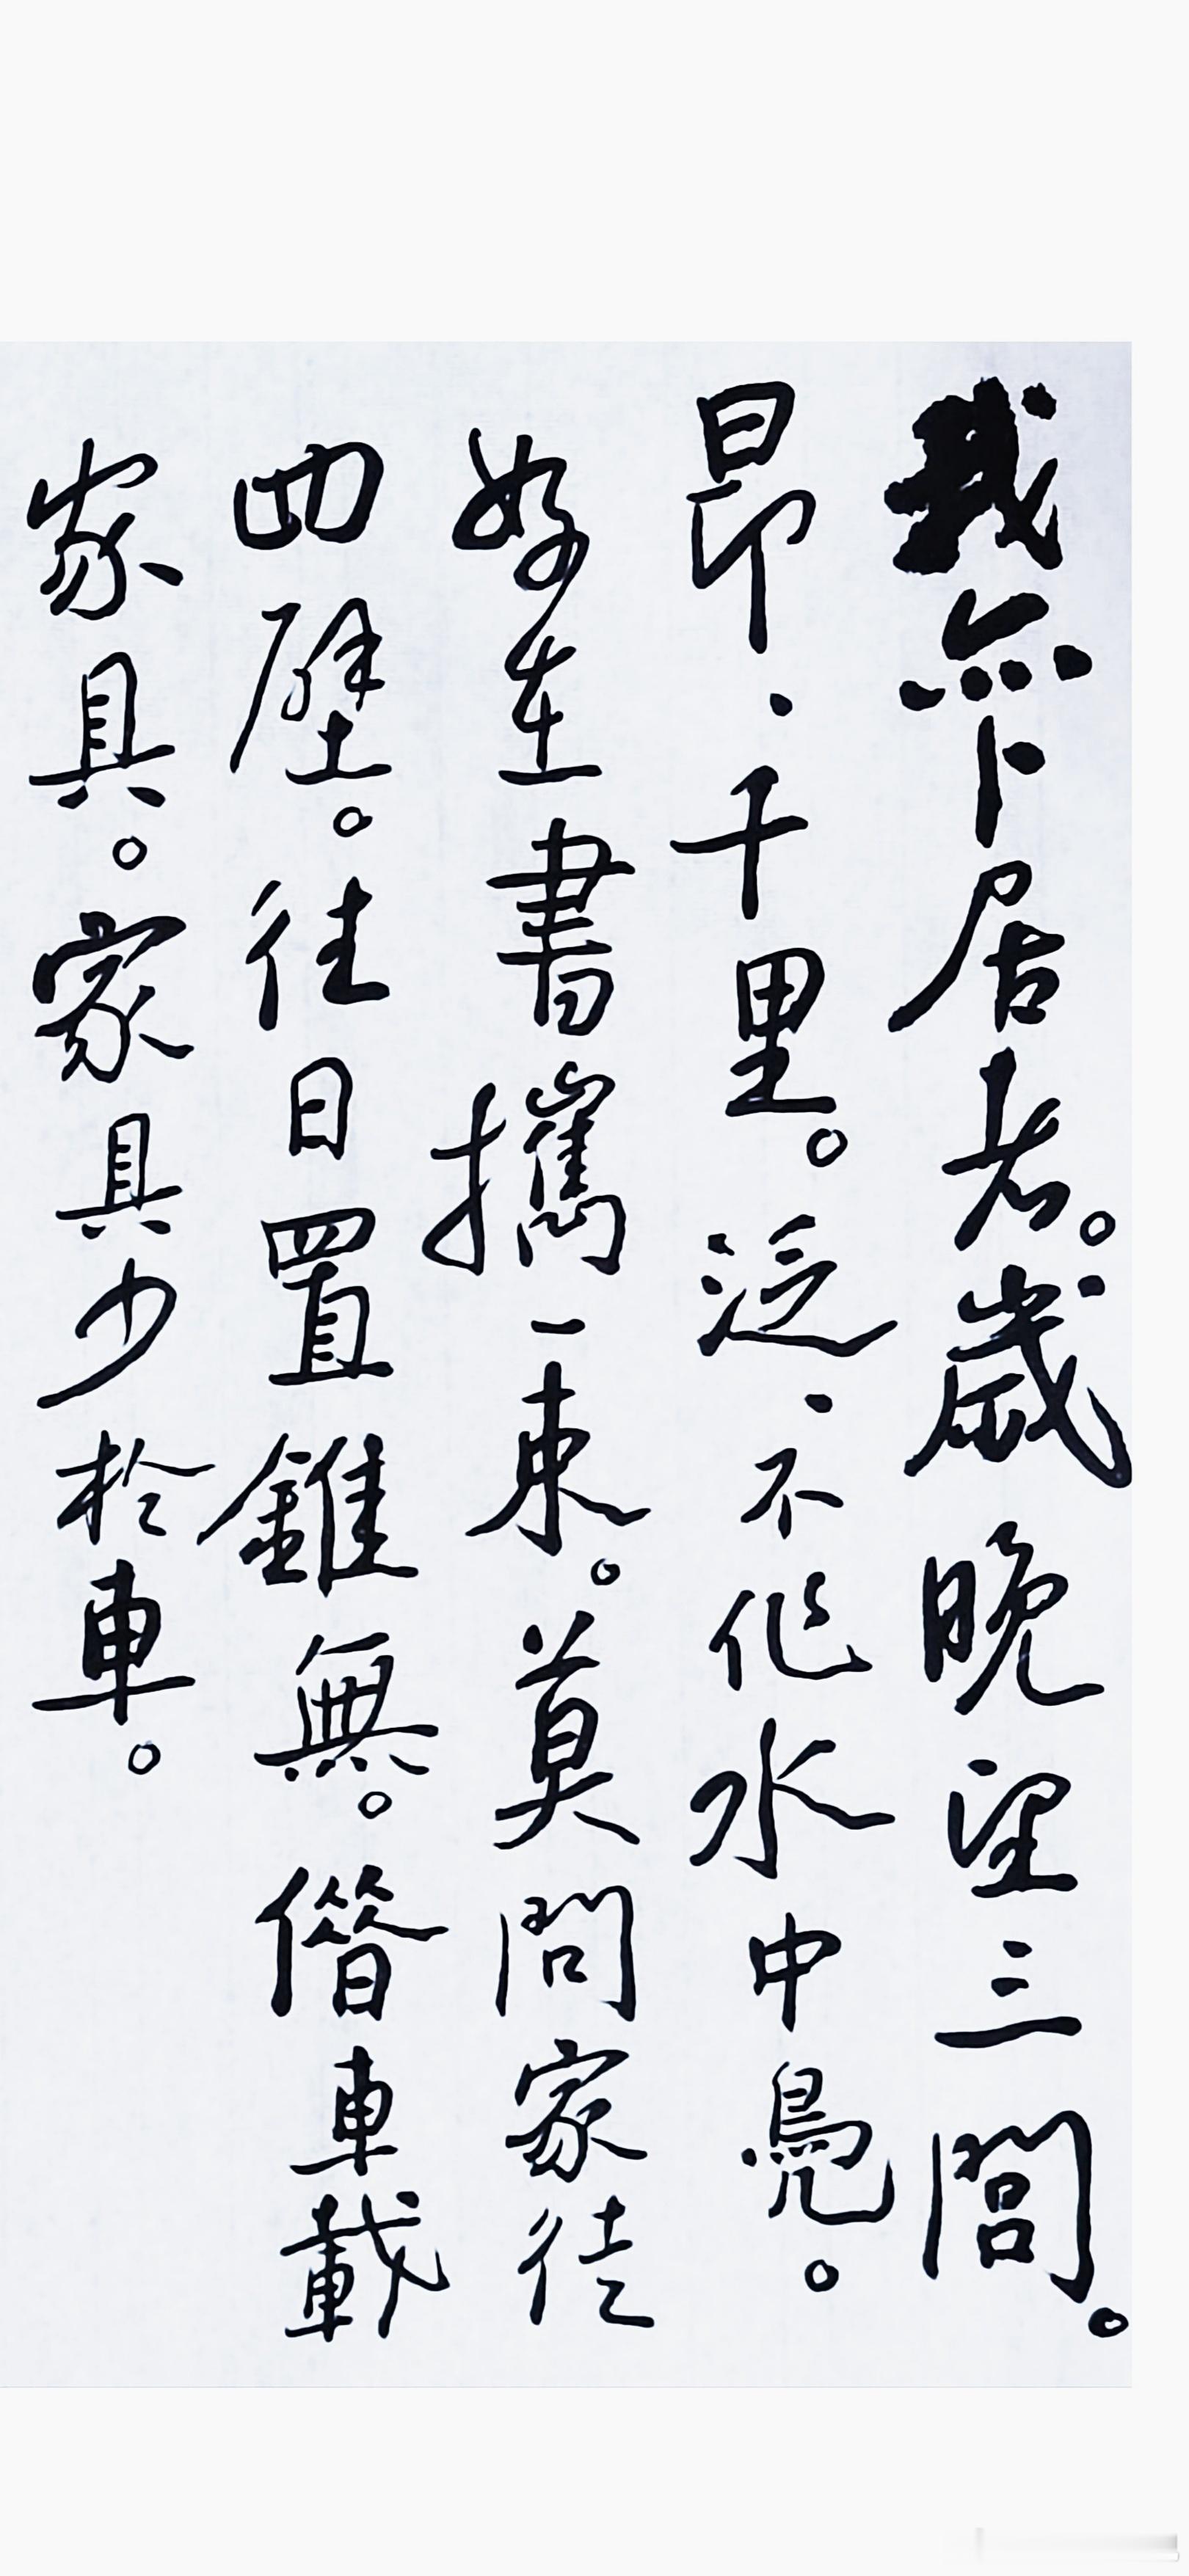 我亦卜居者。歲晚望三閭。
昂、千里。泛、不作水中鳧。
好在書攜一束。莫問家徒
四壁。往日置錐無。借車載
家具。家具少於車。